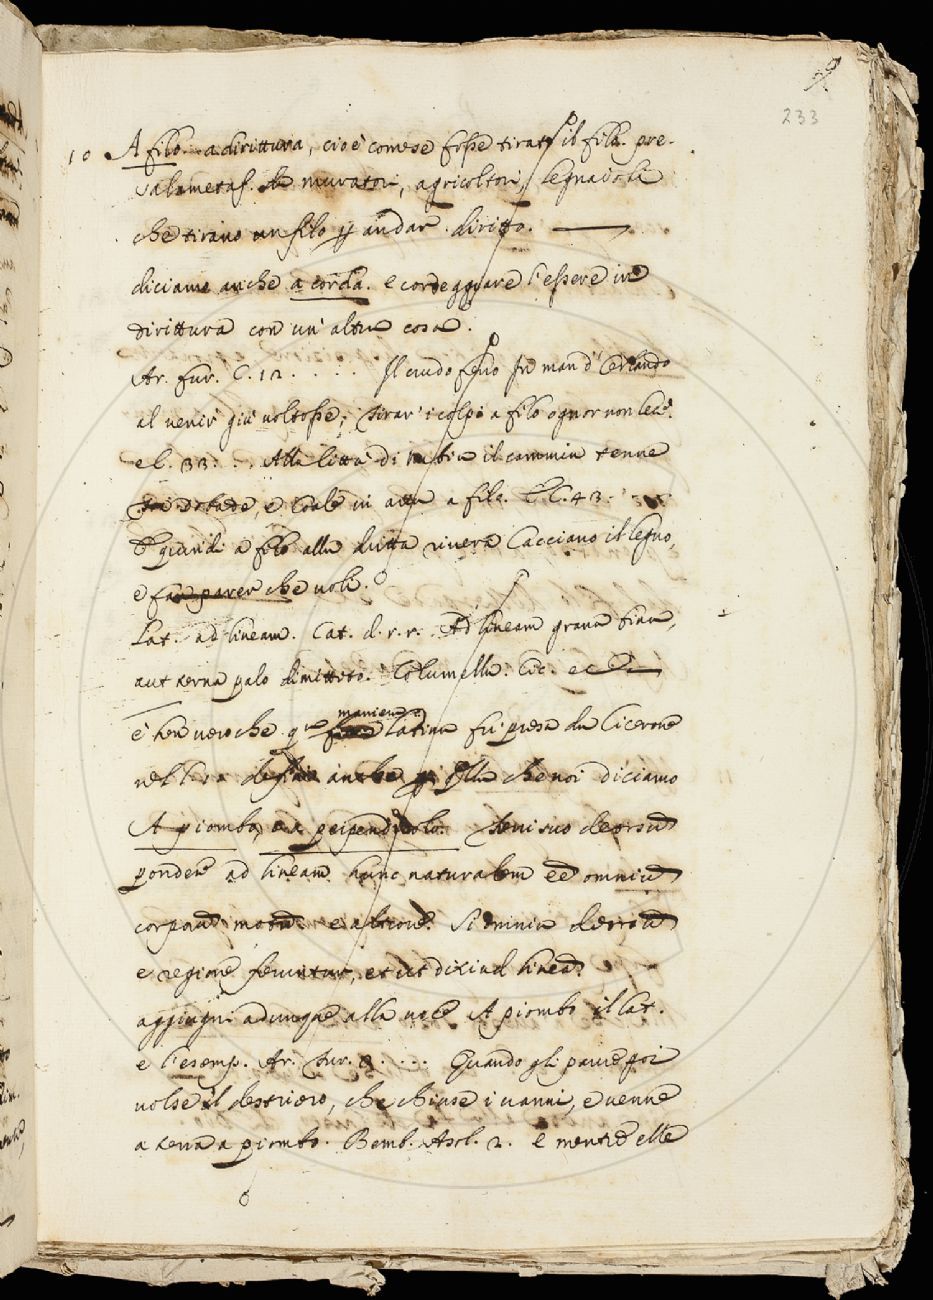 233
10 A filo. a dirittura, cioè come se fosse tirato il filo. pre-
sa la metaf. da muratori, agricoltori, legnaioli
che tirano un filo p andar diritto.
diciamo anche a corda. e cordeggiare l'essere in
dirittura con un' altra cosa.
Ar. fur. C. 12. . . . Il crudo ferro in man d'Orlando
al venir giù voltosse; tirar i colpi a filo ognor non lece.
e l. 33: . . Alla città di Nubia il cammin tenne
, e Coalle in aria a filo. E C. 43.
E quindi a filo alla dritta riviera Cacciano il legno,
e fan parer che voli.
Lat. ad lineam. Cat. d. r. r. Ad lineam
aut perna palo dimittito. Columella. Cic. ec
è ben vero che qta maniera latina fu presa da Cicerone
nel anche p qlla che noi diciamo
A piombo, a perpendicolo. deorsu
pondere ad lineam hunc naturalem ee omniu
corporu motu. e altrove. Si omnia deorsu
e regione ferentur, et ut dixi ad lineas
aggiugni adunque alla voce A piombo il lat.
e l'esemp. Ar. Fur. 2. . . . Quando gli parve poi
volse il destriero, che chiuse i vanni, e venne
a terra a piombo. Bemb. Asol. 2. e mentre elle